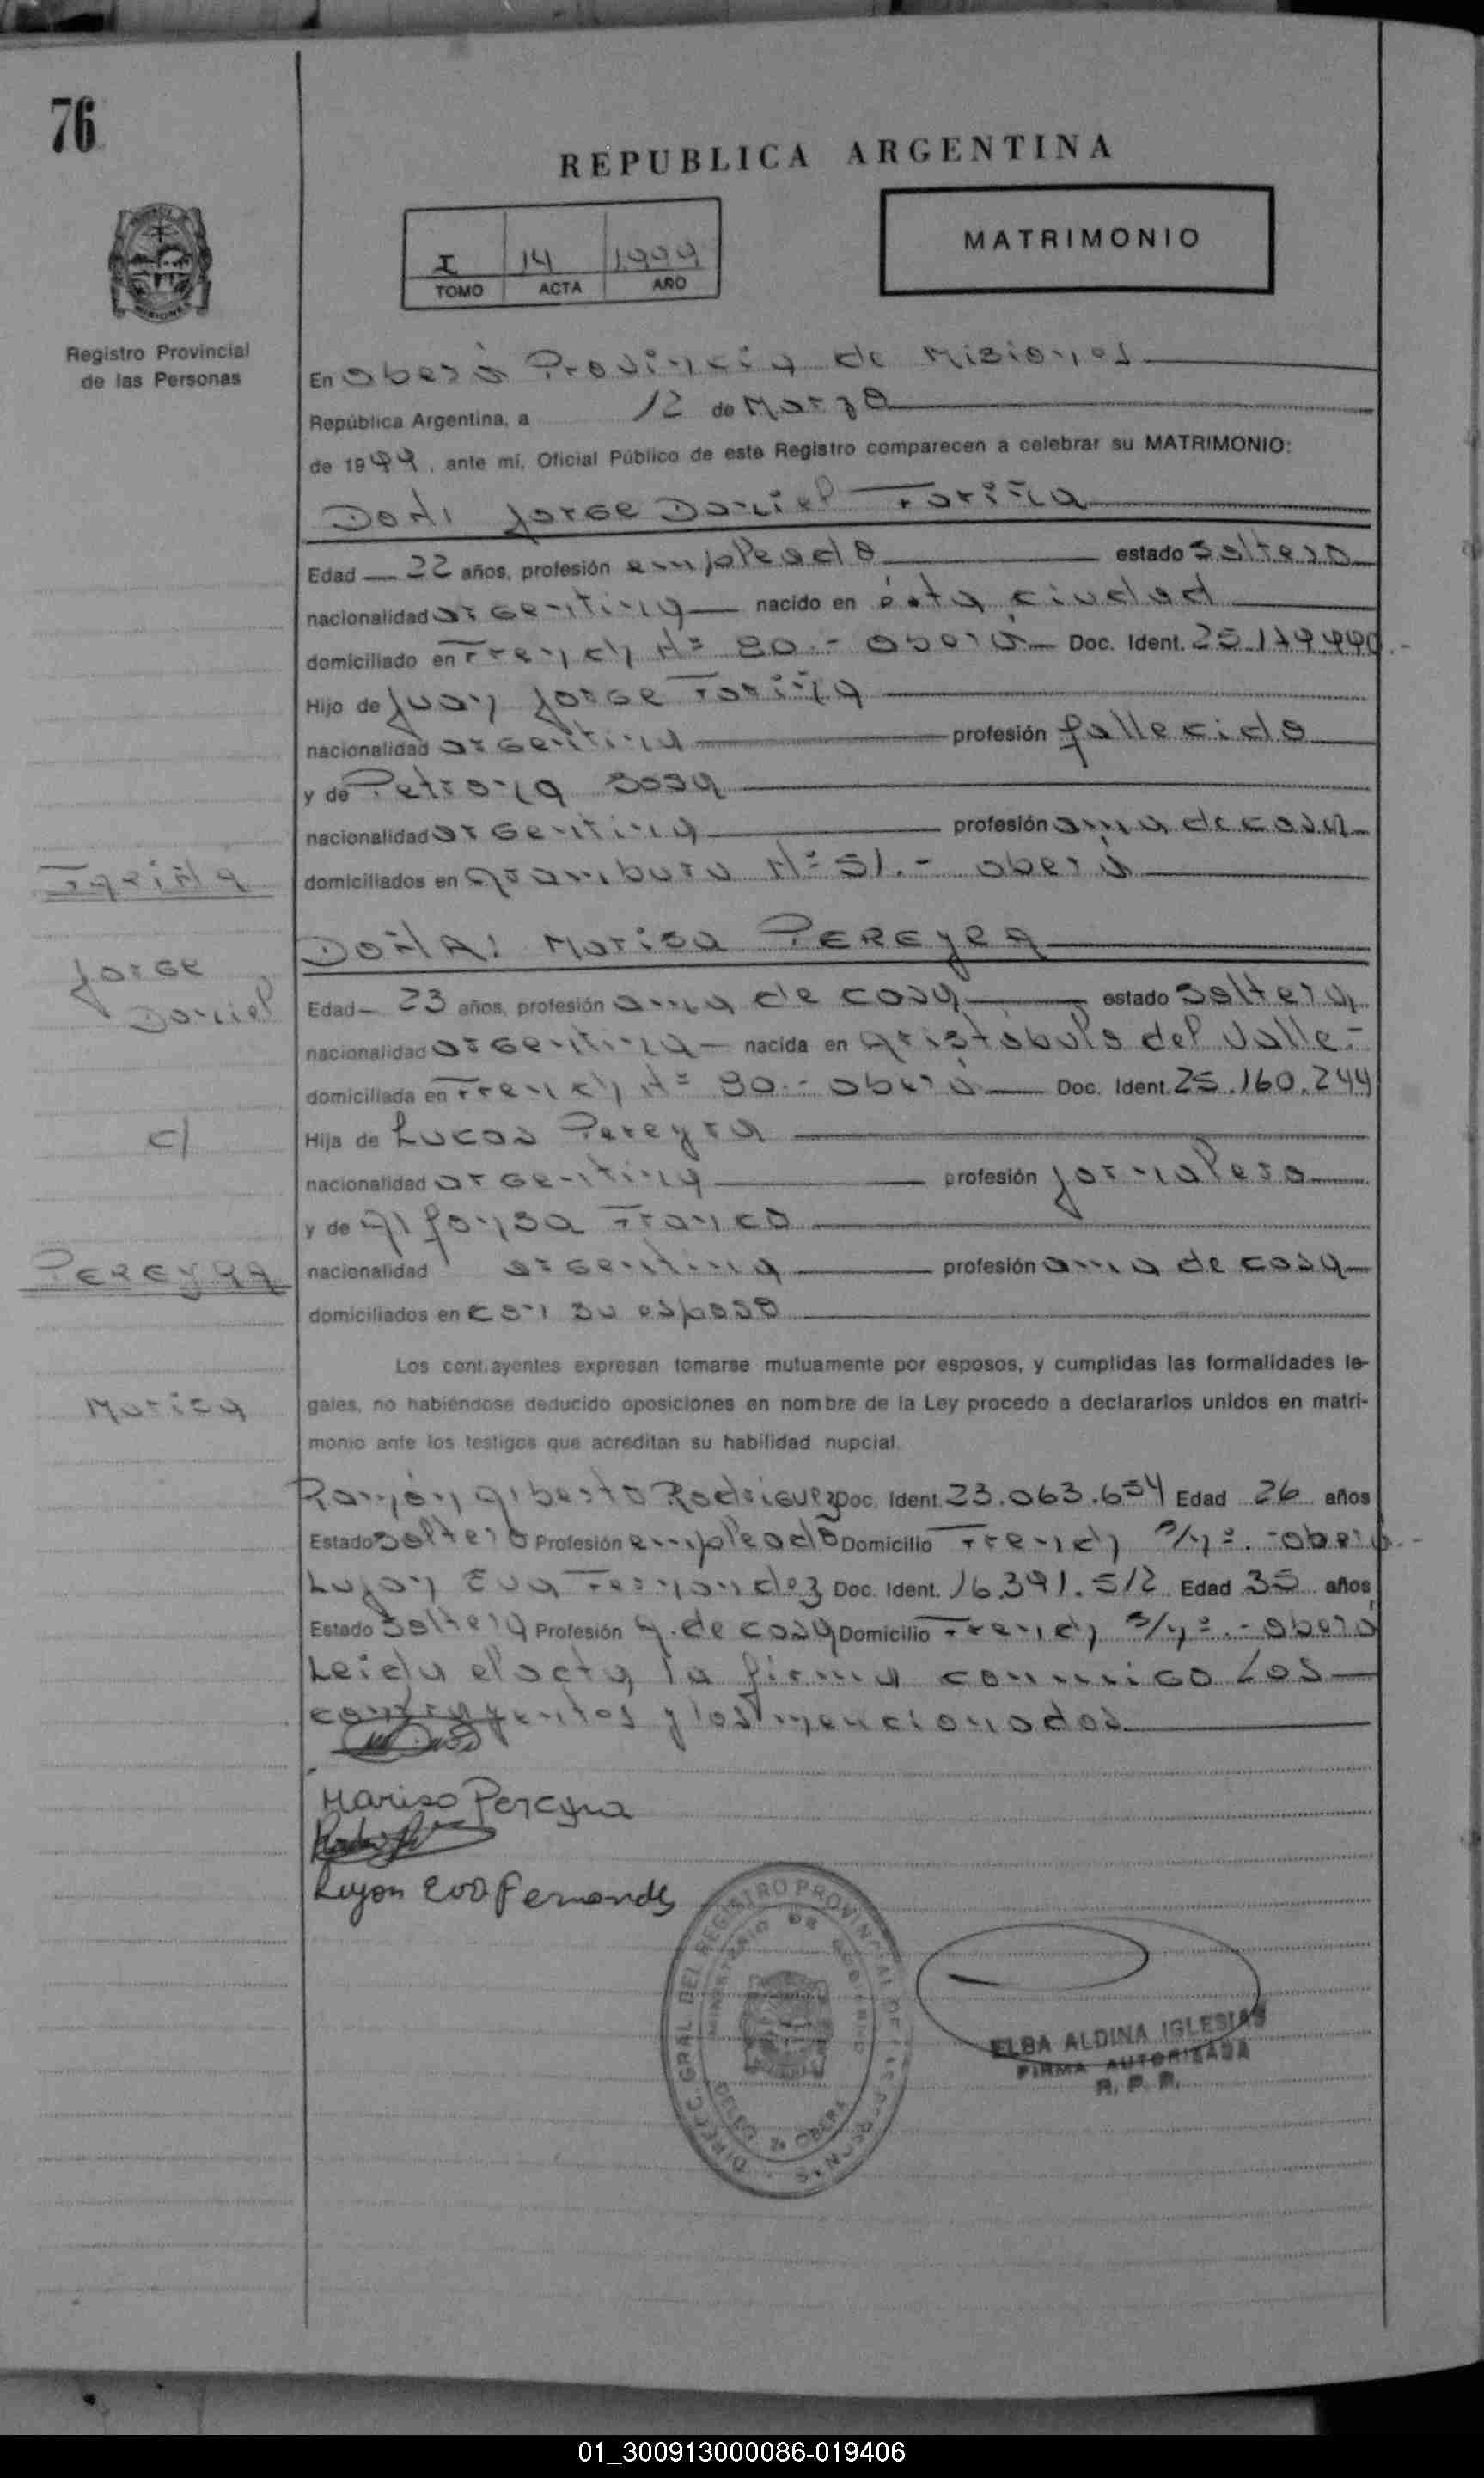 76
REPUBLICA ARGENTINA
I 14 1999
TOMO ACTA AÑO
MATRIMONIO
Registro Provincial
de las Personas
En Oberá Provincia de Misiones
República Argentina, a 12 de Marzo
de 1999, ante mí, Oficial Público de este Registro comparecen a celebrar su MATRIMONIO:
DON: Jorge Daniel Fariña
Edad 22 años, profesión empleado estado soltero
nacionalidad argentina nacido en ésta ciudad
domiciliado en French Nº 80.- Oberá Doc. Ident. 25.179.990.-
Hijo de Juan Jorge Fariña
nacionalidad argentina profesión fallecido
y de Petrona Sosa
nacionalidad argentina profesión ama de casa
domiciliados en Aramburu Nº 51.- Oberá
DOÑA: Marisa PEREYRA
Edad 23 años, profesión ama de casa estado soltera
nacionalidad argentina nacida en Aristóbulo del Valle.-
domiciliada en French Nº 80.- Oberá Doc. Ident. 25.160.244
Hija de Lucas Pereyra
nacionalidad argentina profesión jornalero
y de Alfonsa Franco
nacionalidad argentina profesión ama de casa
domiciliados en con su esposo
Los contrayentes expresan tomarse mutuamente por esposos, y cumplidas las formalidades le-
gales, no habiéndose deducido oposiciones en nombre de la Ley procedo a declararlos unidos en matri-
monio ante los testigos que acreditan su habilidad nupcial.
Ramón Alberto Rodriguez Doc. Ident. 23.063.654 Edad 26 años
Estado soltero Profesión empleado Domicilio French s/nº.-Oberá.-
Lujan Eva Fernandez Doc. Ident. 16.391.512 Edad 35 años
Estado soltera Profesión a. de casa Domicilio French s/nº.-Oberá
Leida el acta, la firma conmigo Los
contrayentes y los mencionados
Marisa Pereyra
Lujan Eva Fernandes
Fariña
Jorge
Daniel
c/
PEREYRA
Marisa
DIRECC. GRAL. DEL REGISTRO PROVINCIAL DE LAS PERSONAS
MINISTERIO DE GOBIERNO
DELEG. OBERA
ELBA ALDINA IGLESIAS
FIRMA AUTORIZADA
R. P. P.
01_300913000086-019406